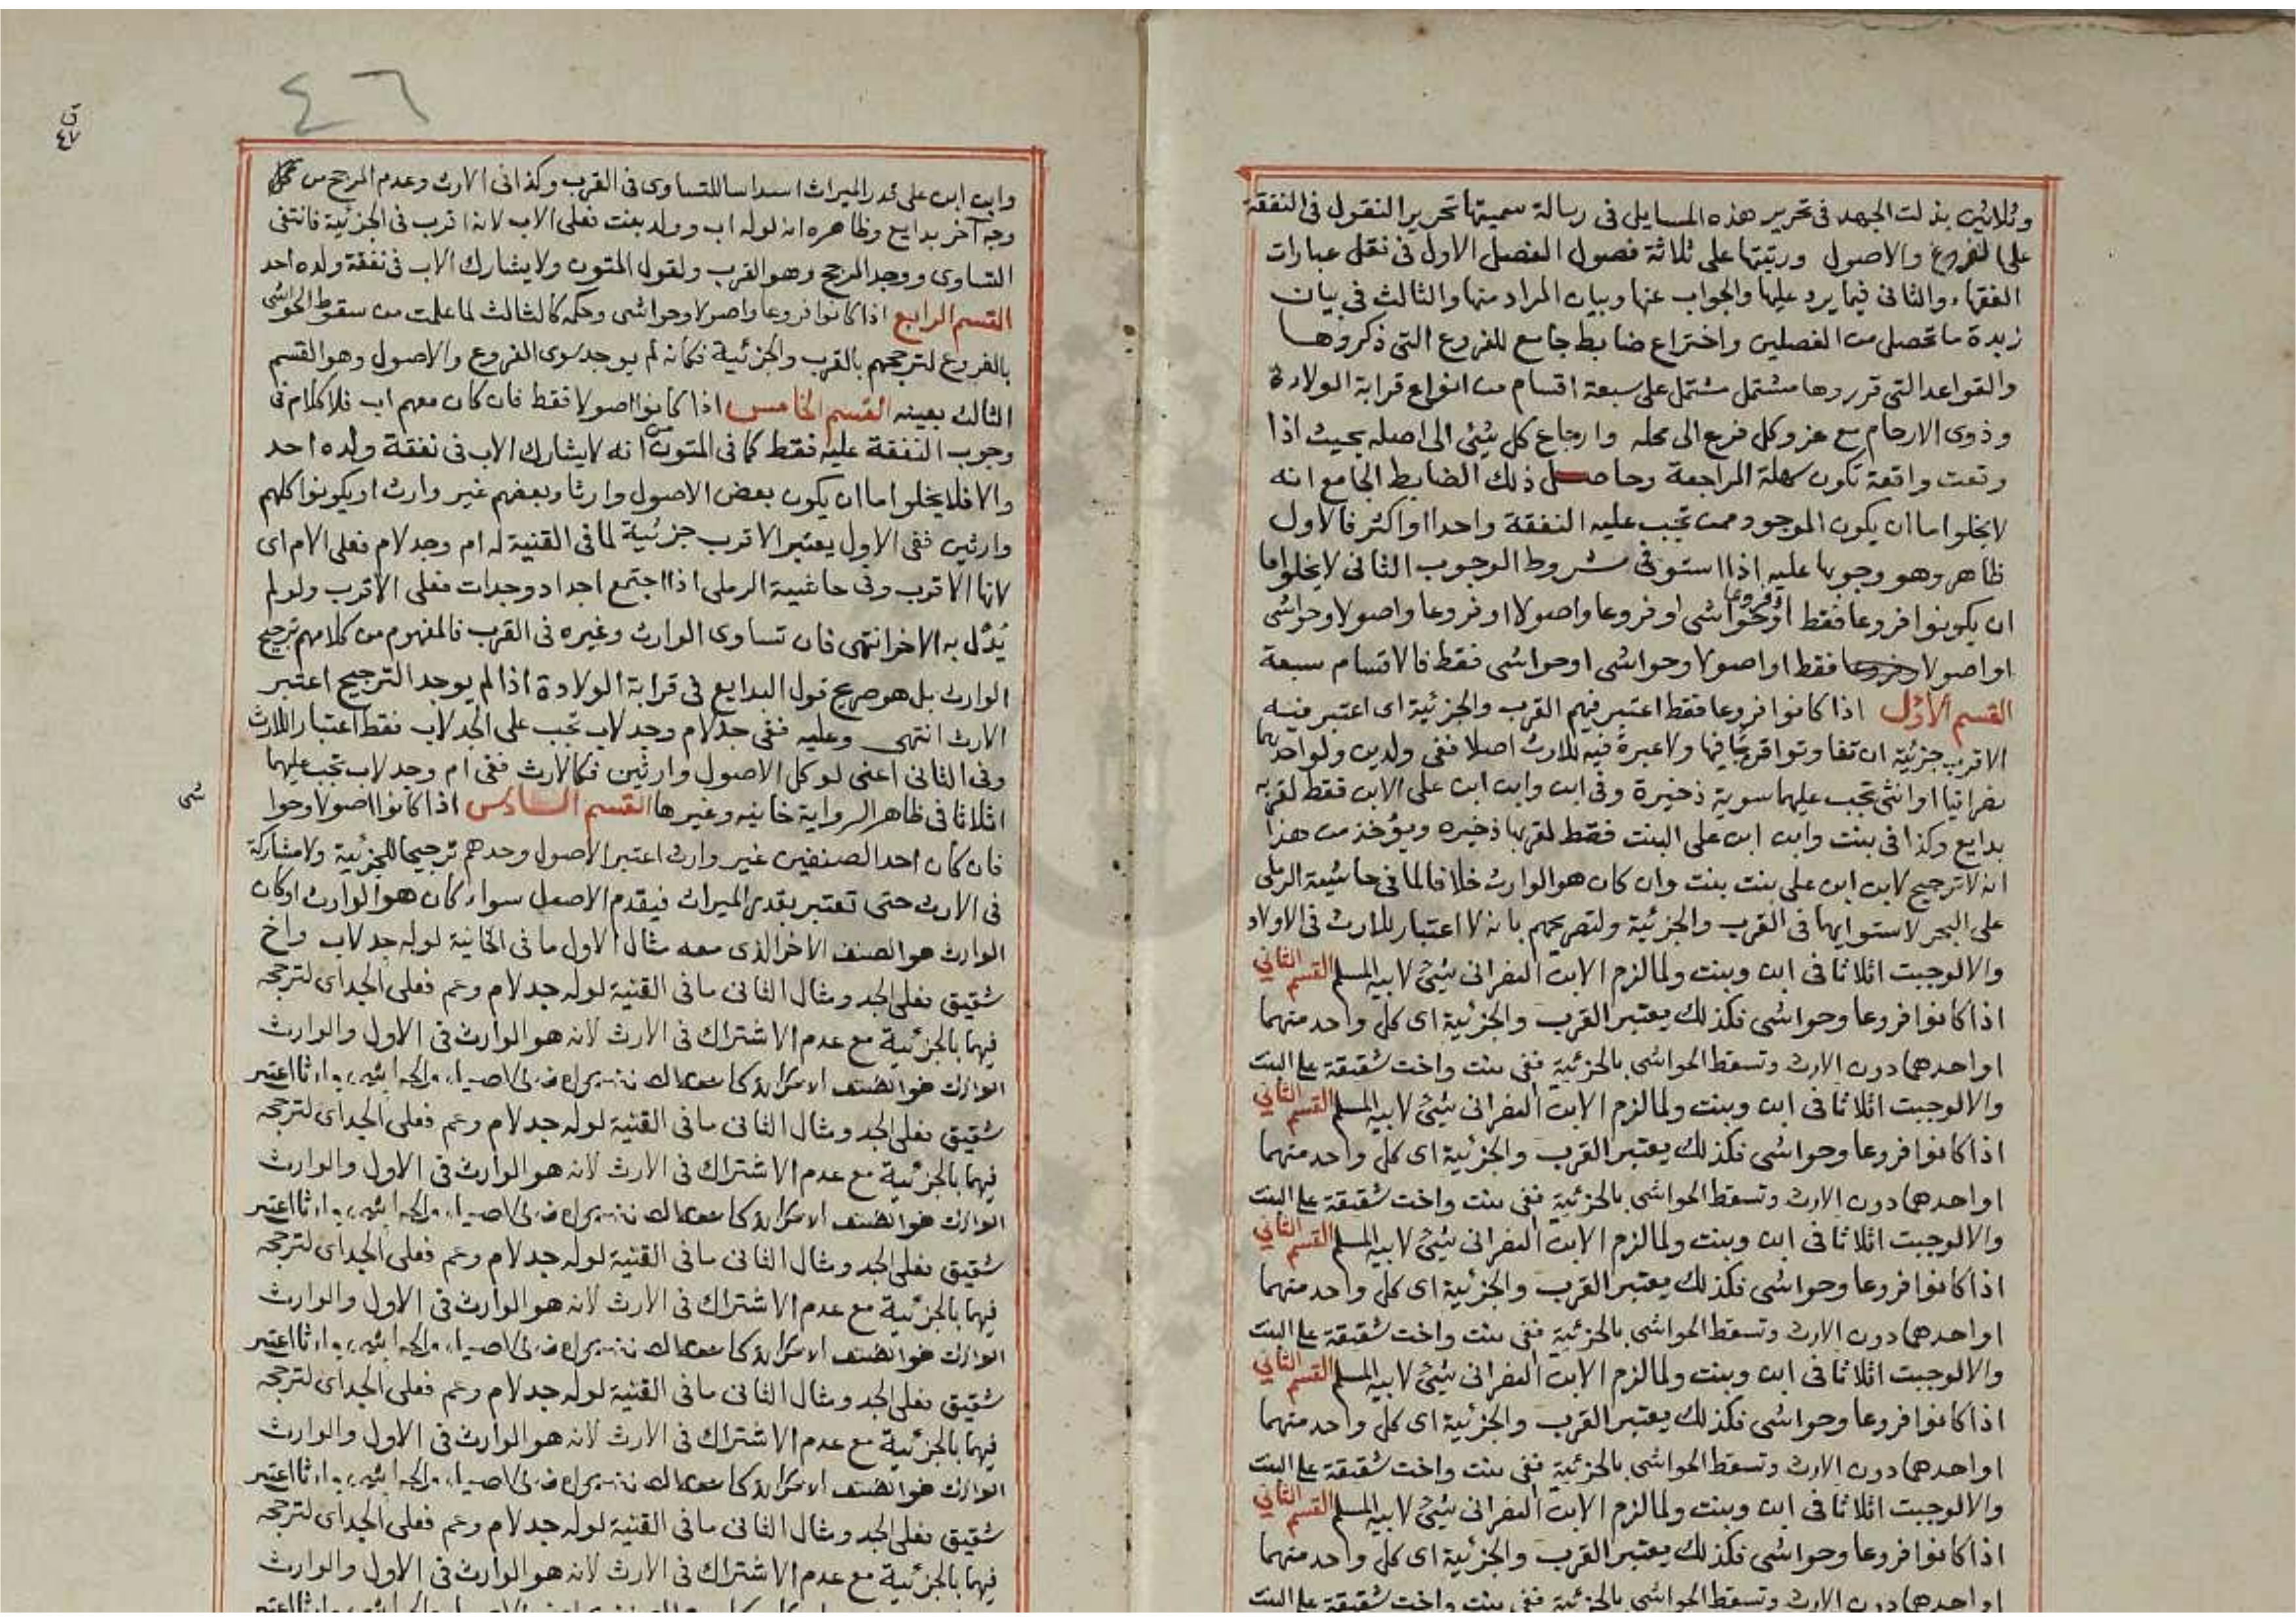 وثلاثين بذلت الجهد في تحرير هذه المسايل في رسالة سميتها تحرير النقول في النفقة
على الفروع والاصول ورتبتها على ثلاثة فصول الفصل الاول في نقل عبارات
الفقهاء والثاني فيما يرد عليها والجواب عنها وبيان المراد منها والثالث في بيان
زبدة ما تحصل من الفصلين واختراع ضابط جامع للفروع التي ذكروها
والقواعد التي قرروها مشتمل مشتمل على سبعة اقسام من انواع قرابة الولادة
وذوى الارحام مع عزو كل فرع الى محله وارجاع كل شئ الى اصله بحيث اذا
وقعت واقعة تكون سهلة المراجعة وحاصل ذلك الضابط الجامع انه
لا يخلوا اما ان يكون الموجود ممن تجب عليه النفقة واحدا او اكثر فالاول
ظاهر وهو وجوبها عليه اذا استوفى شروط الوجوب الثاني لا يخلوا اما
ان يكونوا فروعا فقط او فروعا وحواشى او فروعا واصولا او فروعا واصولا وحواشى
او اصولا فقط او اصولا وحواشى او حواشى فقط فالاقسام سبعة
القسم الاول اذا كانوا فروعا فقط اعتبر فيهم القرب والجزئية اى اعتبر فيه
الاقرب جزئية ان تفاوتوا قربا فيها ولا عبرة فيه للارث اصلا ففى ولدين ولو احدهما
نصرانيا او انثى تجب عليهما سوية ذخيرة وفى ابن وابن ابن على الابن فقط لقربه
بدايع وكذا فى بنت وابن ابن على البنت فقط لقربها ذخيره ويؤخذ من هذا
انه لا ترجيح لابن ابن على بنت بنت وان كان هو الوارث خلافا لما فى حاشية الرملى
على البحر لاستوايهما فى القرب والجزئية ولتصريحهم بانه لا اعتبار للارث فى الاولاد
والا لوجبت اثلاثا فى ابن وبنت ولما لزم الابن النصرانى شئ لابيه المسلم القسم الثاني
اذا كانوا فروعا وحواشى فكذلك يعتبر القرب والجزئية اى كل واحد منهما
او احدهما دون الارث وتسقط الحواشى بالجزئية ففى بنت واخت شقيقة على البنت
والا لوجبت اثلاثا فى ابن وبنت ولما لزم الابن النصرانى شئ لابيه المسلم القسم الثاني
اذا كانوا فروعا وحواشى فكذلك يعتبر القرب والجزئية اى كل واحد منهما
او احدهما دون الارث وتسقط الحواشى بالجزئية ففى بنت واخت شقيقة على البنت
والا لوجبت اثلاثا فى ابن وبنت ولما لزم الابن النصرانى شئ لابيه المسلم القسم الثاني
اذا كانوا فروعا وحواشى فكذلك يعتبر القرب والجزئية اى كل واحد منهما
او احدهما دون الارث وتسقط الحواشى بالجزئية ففى بنت واخت شقيقة على البنت
والا لوجبت اثلاثا فى ابن وبنت ولما لزم الابن النصرانى شئ لابيه المسلم القسم الثاني
اذا كانوا فروعا وحواشى فكذلك يعتبر القرب والجزئية اى كل واحد منهما
او احدهما دون الارث وتسقط الحواشى بالجزئية ففى بنت واخت شقيقة على البنت
والا لوجبت اثلاثا فى ابن وبنت ولما لزم الابن النصرانى شئ لابيه المسلم القسم الثاني
اذا كانوا فروعا وحواشى فكذلك يعتبر القرب والجزئية اى كل واحد منهما
او احدهما دون الارث وتسقط الحواشى بالجزئية ففى بنت واخت شقيقة على البنت
٤٦
ق
٤٧
وابن ابن على قدر الميراث اسداسا للتساوى فى القرب وكذا فى الارث وعدم المرجح من
وجه آخر بدايع وظاهره انه لوله اب وولد بنت فعلى الاب لانه اقرب فى الجزئية فانتفى
التساوى ووجد المرجح وهو القرب ولقول المتون ولا يشارك الاب فى نفقة ولده احد
القسم الرابع اذا كانوا فروعا واصولا وحواشى وحكمه كالثالث لما علمت من سقوط الحواشى
بالفروع لترجحهم بالقرب والجزئية فكانه لم يوجد سوى الفروع والاصول وهو القسم
الثالث بعينه القسم الخامس اذا كانوا اصولا فقط فان كان معهم اب فلا كلام فى
وجوب النفقة عليه فقط كما فى المتون من انه لا يشارك الاب فى نفقة ولده احد
والا فلا يخلوا اما ان يكون بعض الاصول وارثا وبعضهم غير وارث او يكونوا كلهم
وارثين ففى الاول يعتبر الاقرب جزئية لما فى القنية له ام وجد لام فعلى الام اى
لانها الاقرب وفى حاشية الرملى اذا اجتمع اجداد وجدات فعلى الاقرب ولو لم
يُدل به الاخر انتهى فان تساوى الوارث وغيره فى القرب فالمفهوم من كلامهم ترجيح
الوارث بل هو صريح قول البدايع فى قرابة الولادة اذا لم يوجد الترجيح اعتبر
الارث انتهى وعليه ففى جد لام وجد لاب تجب على الجد لاب فقط اعتبارا للارث
وفى الثانى اعنى لو كل الاصول وارثين فكالارث ففى ام وجد لاب تجب عليهما
اثلاثا فى ظاهر الرواية خانيه وغيرها القسم السادس اذا كانوا اصولا وحوا
شى
فان كان احد الصنفين غير وارث اعتبر الاصول وحدهم ترجيحا للجزئية ولا مشاركة
فى الارث حتى تعتبر بقدر الميراث فيقدم الاصل سواء كان هو الوارث او كان
الوارث هو الصنف الاخر الذى معه مثال الاول ما فى الخانية لوله جد لاب واخ
شقيق فعلى الجد ومثال الثانى ما فى القنية لوله جد لام وعم فعلى الجد اى لترجحه
فيهما بالجزئية مع عدم الاشتراك فى الارث لانه هو الوارث فى الاول والوارث
شقيق فعلى الجد ومثال الثانى ما فى القنية لوله جد لام وعم فعلى الجد اى لترجحه
فيهما بالجزئية مع عدم الاشتراك فى الارث لانه هو الوارث فى الاول والوارث
شقيق فعلى الجد ومثال الثانى ما فى القنية لوله جد لام وعم فعلى الجد اى لترجحه
فيهما بالجزئية مع عدم الاشتراك فى الارث لانه هو الوارث فى الاول والوارث
شقيق فعلى الجد ومثال الثانى ما فى القنية لوله جد لام وعم فعلى الجد اى لترجحه
فيهما بالجزئية مع عدم الاشتراك فى الارث لانه هو الوارث فى الاول والوارث
شقيق فعلى الجد ومثال الثانى ما فى القنية لوله جد لام وعم فعلى الجد اى لترجحه
فيهما بالجزئية مع عدم الاشتراك فى الارث لانه هو الوارث فى الاول والوارث